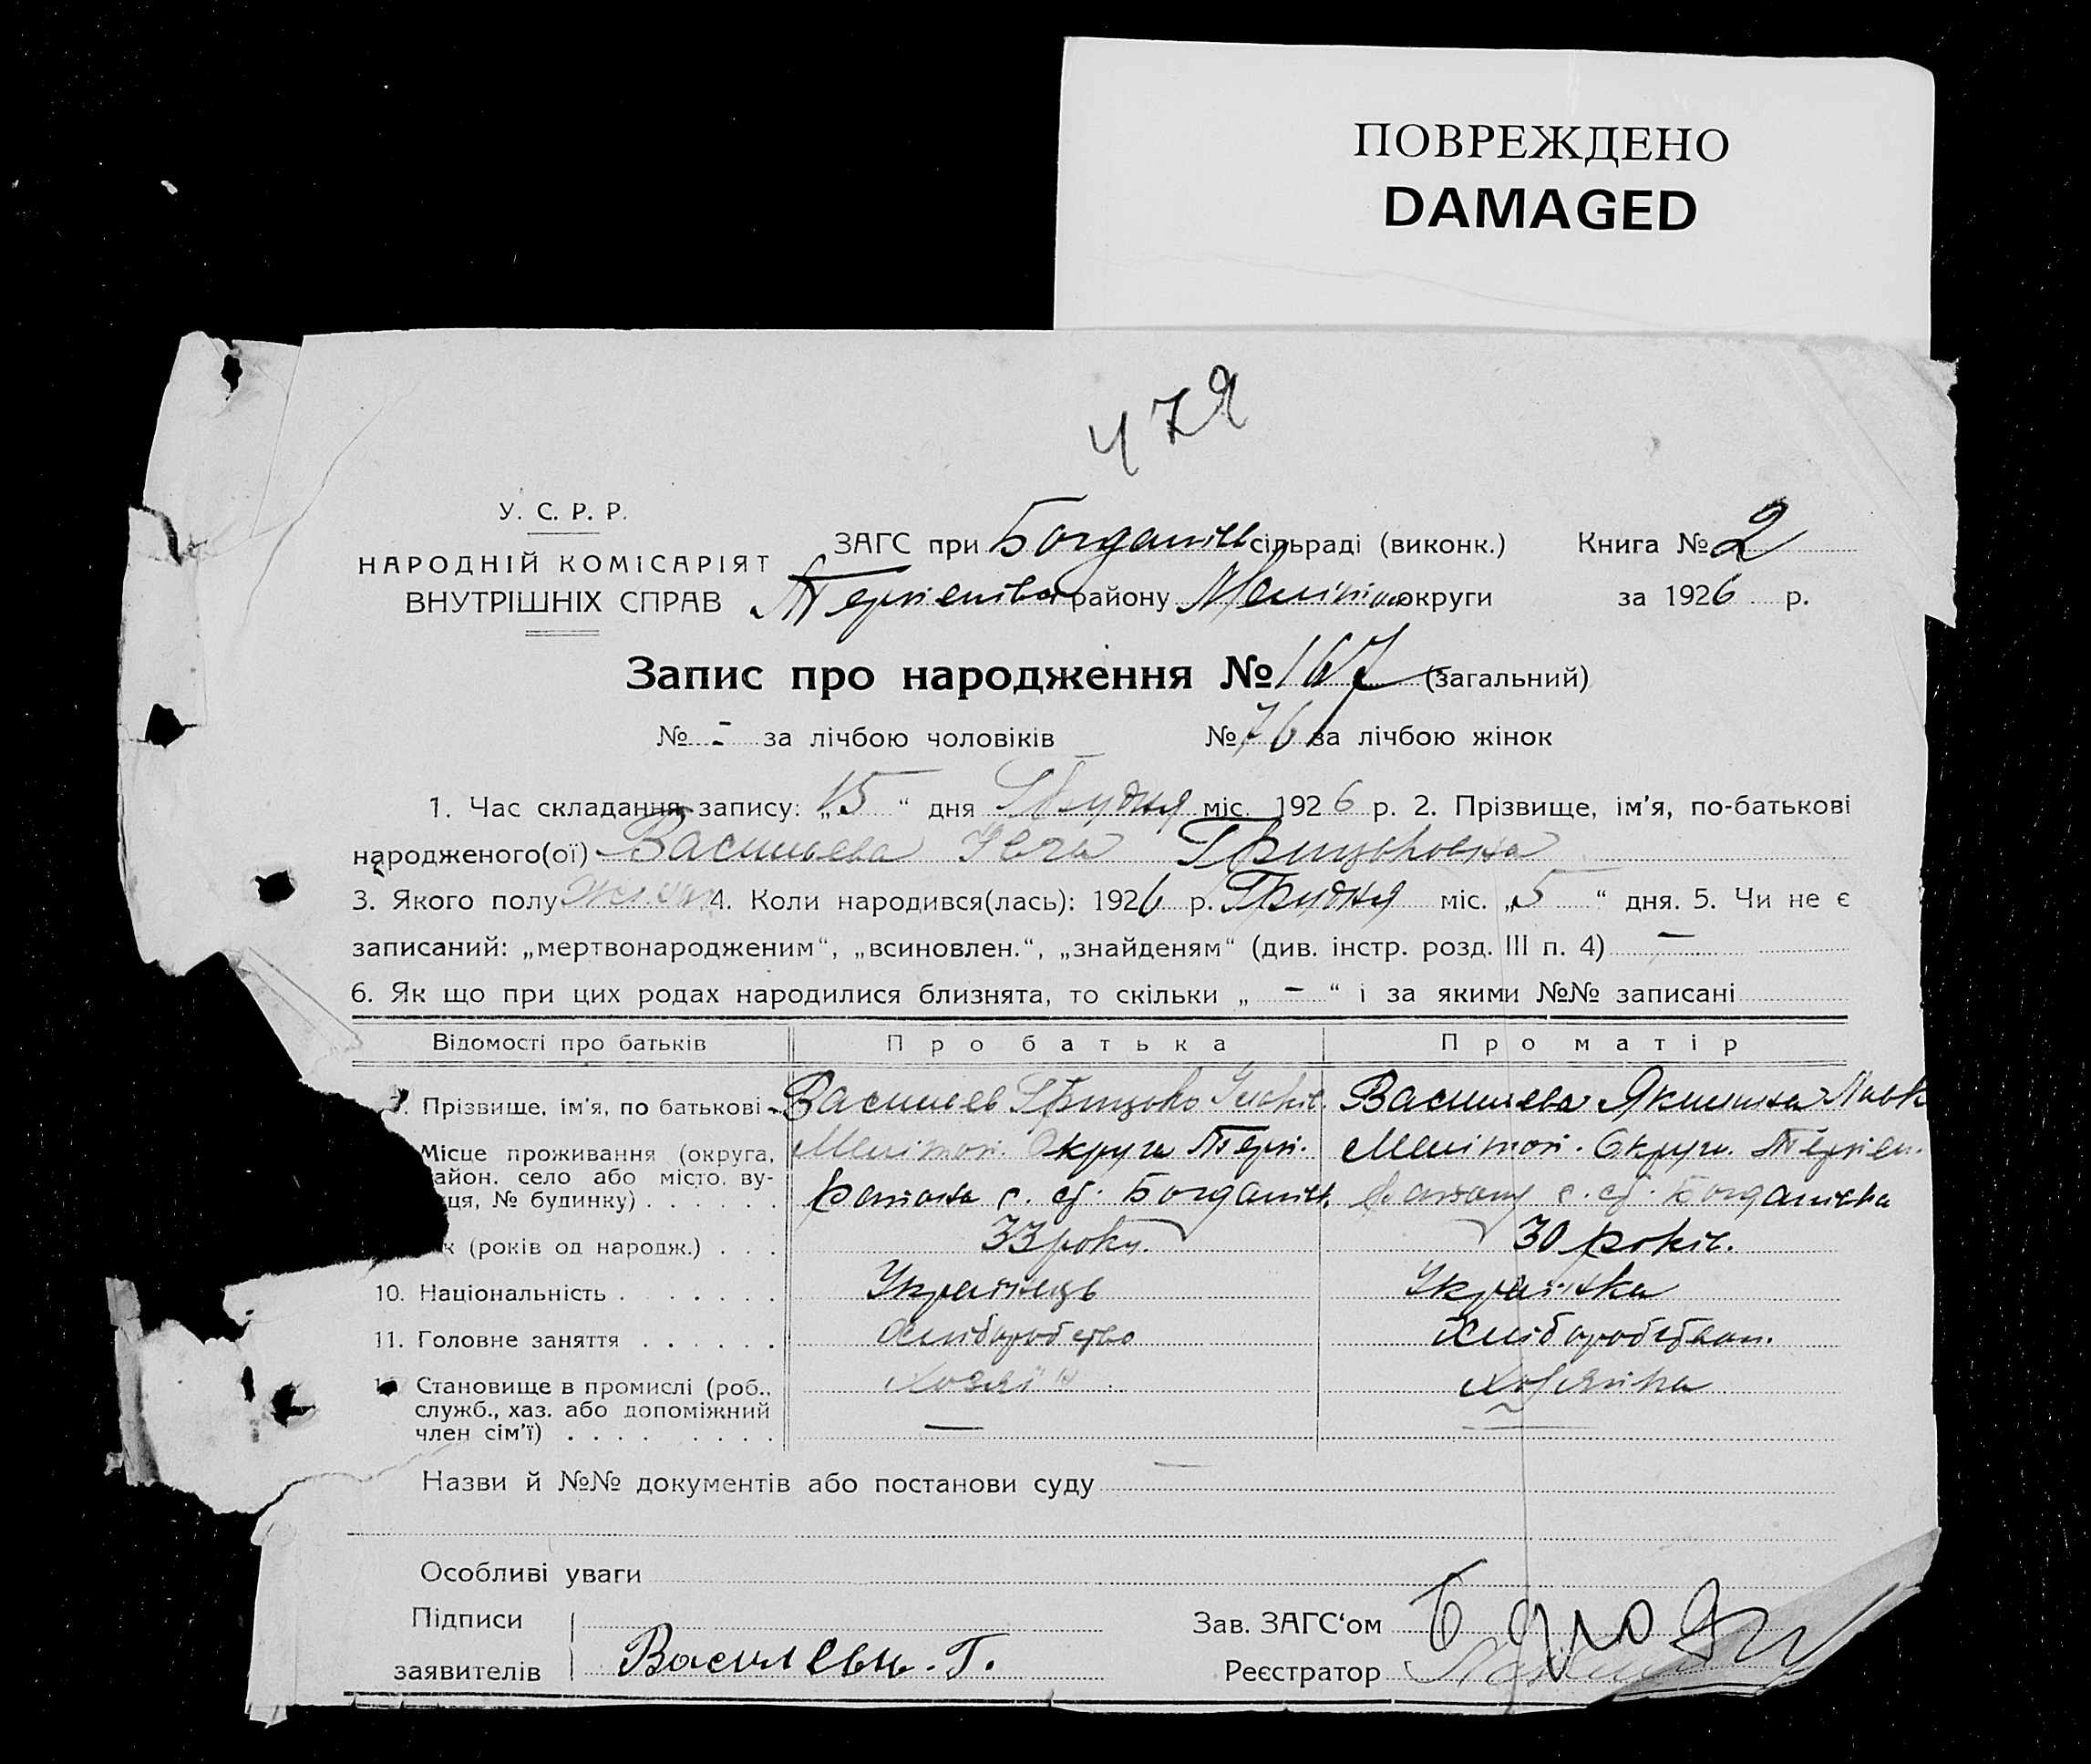 ПОВРЕЖДЕНО
DAMAGED
479
У. С. Р. Р.
НАРОДНІЙ КОМІСАРІЯТ
ВНУТРІШНІХ СПРАВ
ЗАГС при Богданівс сільраді (виконк.) Книга № 2
району Меліт округи за 1926 р.
Запис про народження № 167 (загальний)
№ - за лічбою чоловіків № 76 за лічбою жінок
1. Час складання запису: „15“ дня Грудня міс. 1926 р. 2. Прізвище, ім'я, по-батькові
народженого(ої) Васильева Грицьковна
3. Якого полу 4. Коли народився(лась): 1926 р. Грудня міс. „5“ дня. 5. Чи не є
записаний: „мертвонародженим“, „всиновлен.“, „знайденям“ (див. інстр. розд. III п. 4) —
6. Як що при цих родах народилися близнята, то скільки „ - “ і за якими №№ записані
Відомості про батьків Про батька Про матір
Прізвище, ім'я, по батькові Васильев Грицько Васильева Якилина Павк
Місце проживання (округа, Мелітоп. Округа Терп. Мелітоп. Округи Терпен.
айон, село або місто, ву-
ця, № будинку) . . . . . . района с. Богданівк. району с. Богданівка
к (років од народж.) . . . 33 роки. 30 років.
10. Національність . . . . . . . Українець Українка
11. Головне заняття . . . . . . Хліборобство
Становище в промислі (роб., Хозяїн Хозяйка
служб., хаз. або допоміжний
член сім'ї) . . . . . . . . — —
Назви й №№ документів або постанови суду —
Особливі уваги
Підписи Зав. ЗАГС‘ом
заявителів Г. Реєстратор